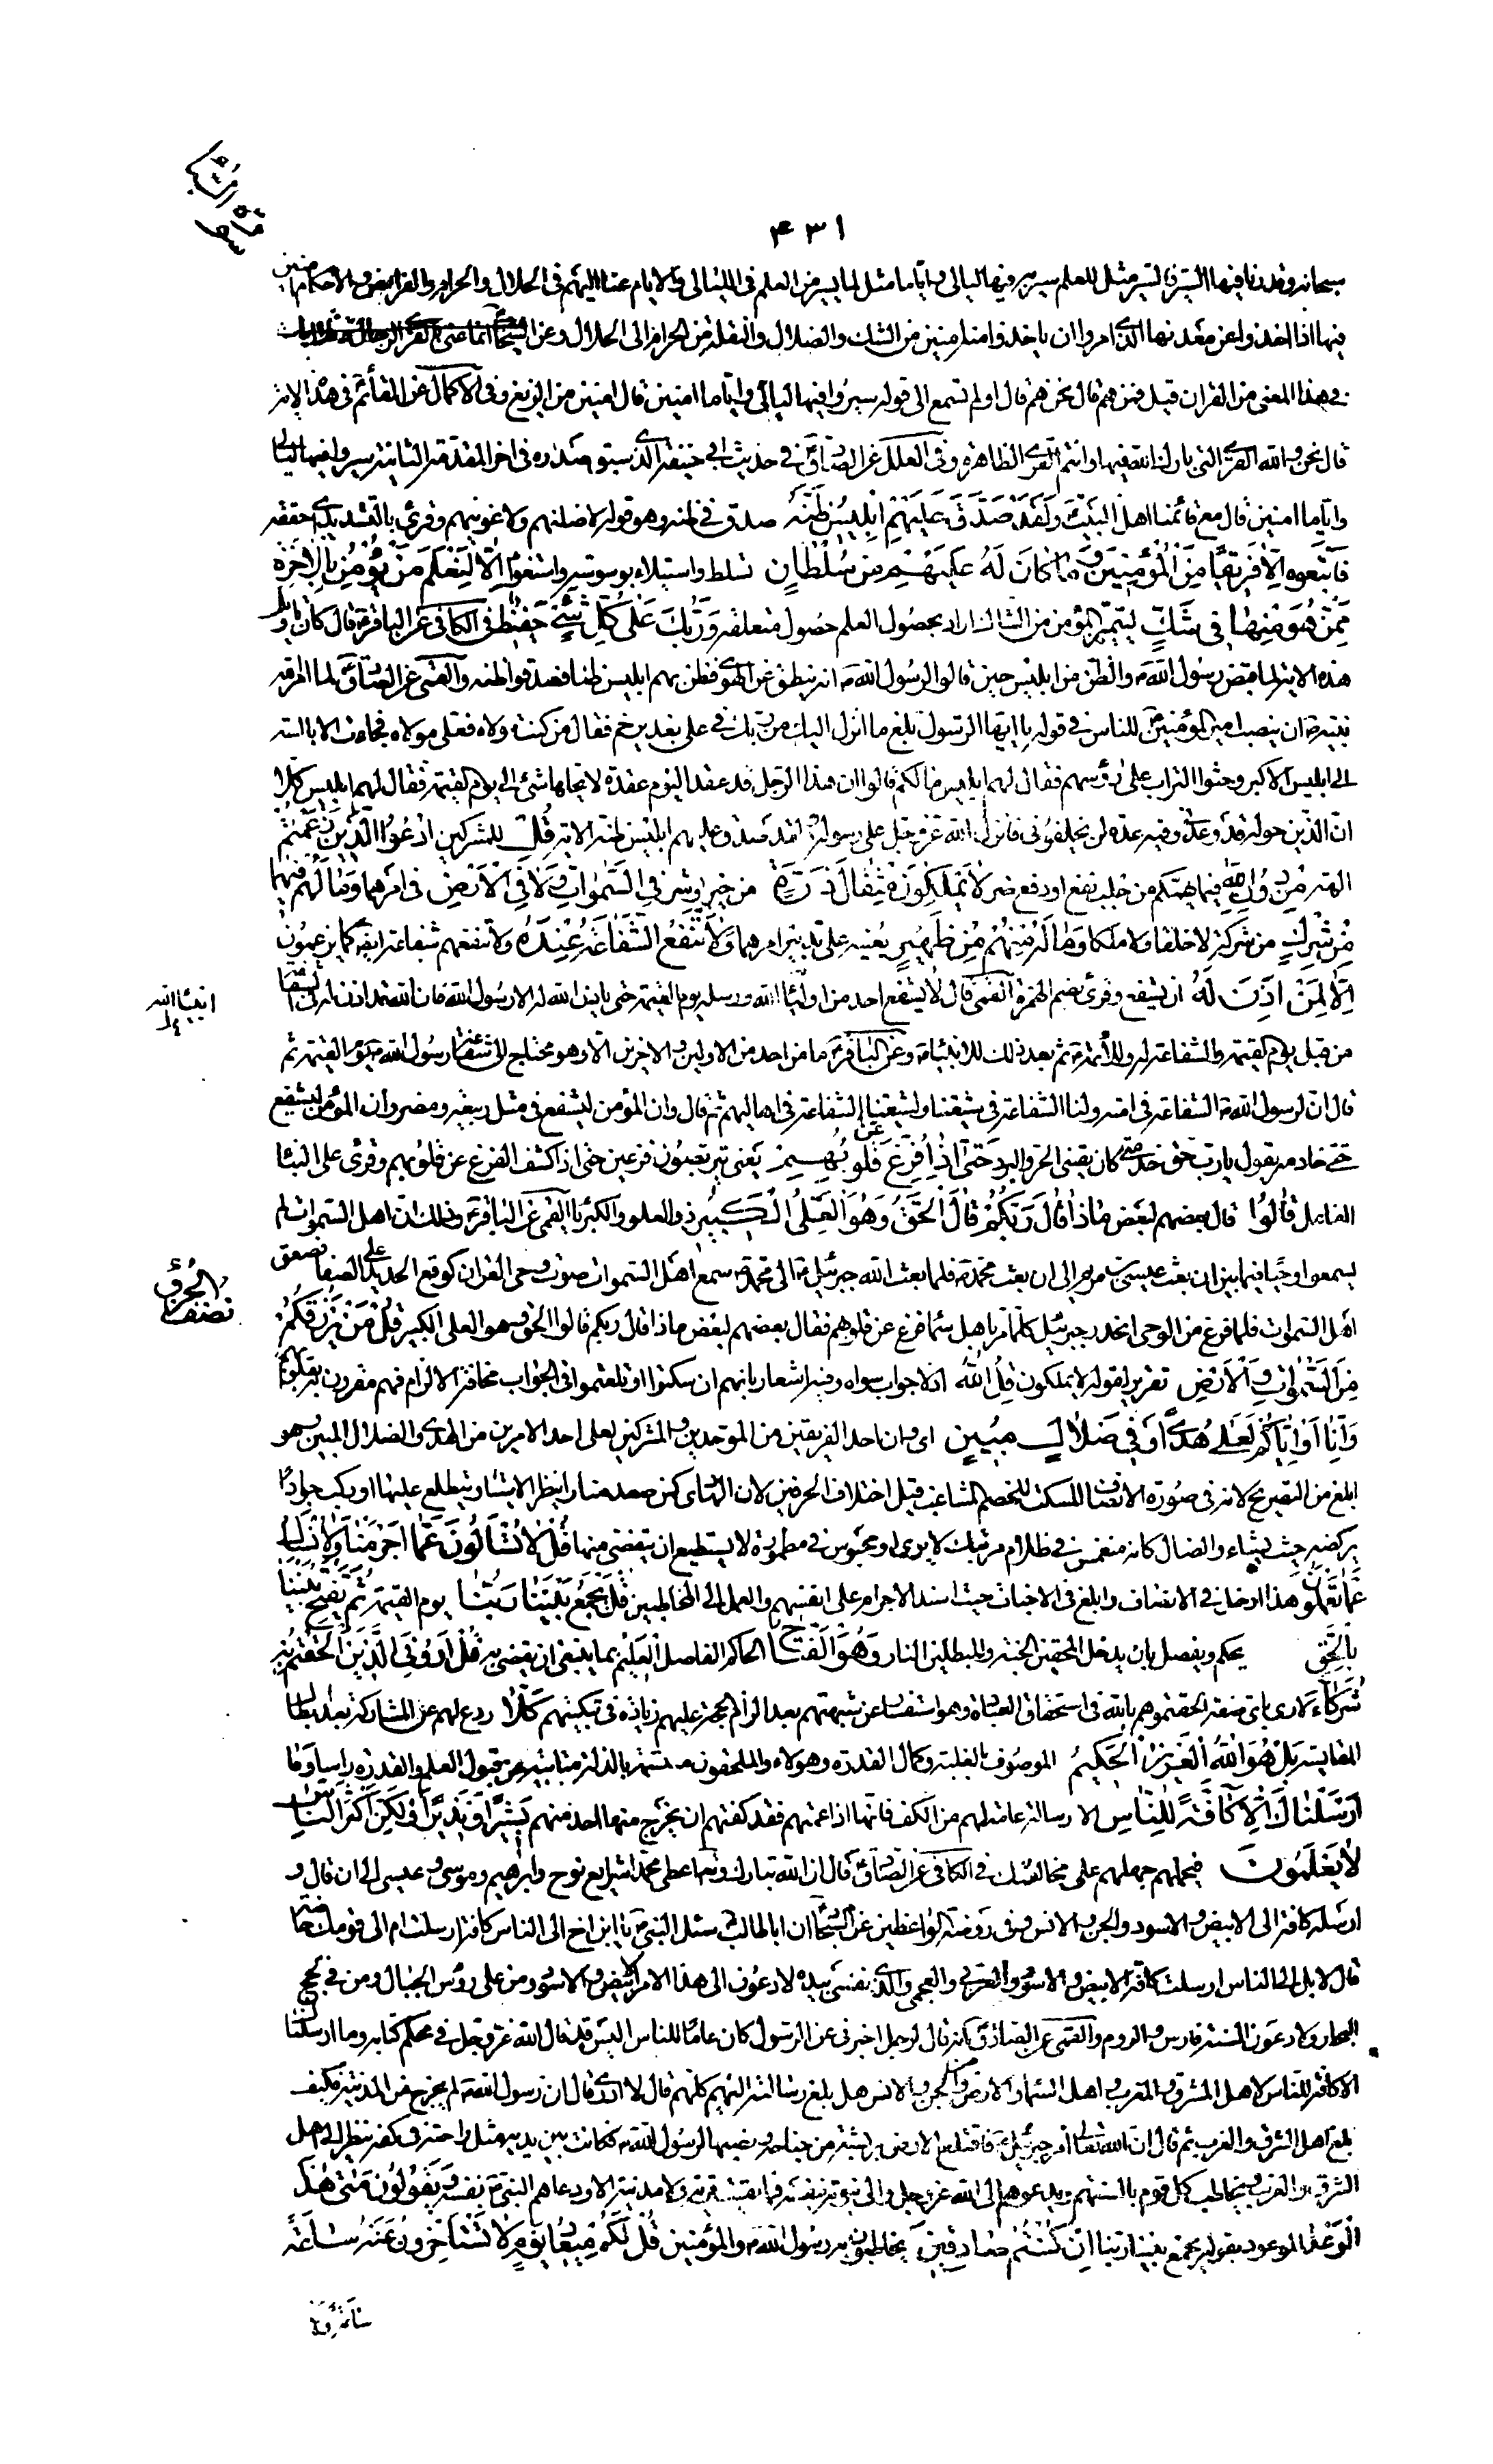 سورة السبا
٤٣١
سبحانه وقدرنا فيها السير فالسير مثل للعلم سير به فيها ليالي واياما مثل لما يسير من العلم في الليالي والايام عنا اليهم في الحلال والحرام والفرايض والاحكام امنين
فيها اذا اخذوا عن معدنها الذي امروا ان ياخذوا منه امنين من الشك والضلال والنقلة من الحرام الى الحلال وعن السجاد انما عنى بالقرى الرجال
في هذا المعنى من القران قيل فمن هم قال نحن هم قال اولم تسمع الى قوله سيروا فيها ليالي واياما امنين قال امنين من الزيغ وفي الاكمال عن القائم في هذه الاية
قال نحن والله القرى التي بارك الله فيها وانتم القرى الظاهرة وفي العلل عن الصادق في حديث ابي حنيفة الذي سبق صدره في اخر المقدمة الثانية سيروا فيها ليالي
واياما امنين قال مع قائمنا اهل البيت وَلَقَدْ صَدَّقَ عَلَيْهِمْ اِبْلِيسُ ظَنَّهُ صدق في ظنه وهو قوله لاضلنهم ولاغوينهم وقرئ بالتشديد اي حققه
فَاتَّبَعُوهُ اِلَّا فَرِيقًا مِنَ الْمُؤْمِنِينَ وَمَا كَانَ لَهُ عَلَيْهِمْ مِنْ سُلْطَانٍ تسلط واستيلاء بوسوسة واستغواء اِلَّا لِنَعْلَمَ مَنْ يُؤْمِنُ بِالْآخِرَةِ
مِمَّنْ هُوَ مِنْهَا فِي شَكٍّ ليتميز المؤمن من الشاك اراد بحصول العلم حصول متعلقه وَرَبُّكَ عَلَى كُلِّ شَيْءٍ حَفِيظٌ في الكافي عن الباقر قال كان تاويل
هذه الاية لما قبض رسول الله والظن من ابليس حين قالوا لرسول الله انه ينطق عن الهوى فظن بهم ابليس ظنا فصدقوا ظنه والقمي عن الصادق لما امر الله
نبيه ان ينصب امير المؤمنين للناس في قوله يا ايها الرسول بلغ ما انزل اليك من ربك في علي بغدير خم فقال من كنت مولاه فعلي مولاه فجاءت الابالسة
الى ابليس الاكبر وحثوا التراب على رؤسهم فقال لهم ابليس مالكم قالوا ان هذا الرجل قد عقد اليوم عقدة لا يحلها شئ الى يوم القيمة فقال لهم ابليس كلا
ان الذين حوله قد وعدوني فيه عدة لن يخلفوني فانزل الله عز وجل على رسوله ولقد صدق عليهم ابليس ظنه الاية قُلِ للمشركين ادْعُوا الَّذِينَ زَعَمْتُمْ
الهة مِنْ دُونِ اللهِ فيما يهمكم من جلب نفع او دفع ضر لَا يَمْلِكُونَ مِثْقَالَ ذَرَّةٍ من خير او شر فِي السَّمَوَاتِ وَلَا فِي الْاَرْضِ في امرهما وَمَا لَهُمْ فِيهِمَا
مِنْ شِرْكٍ من شركة لا خلقا ولا ملكا وَمَا لَهُ مِنْهُمْ مِنْ ظَهِيرٍ يعينه على تدبير امرهما وَلَا تَنْفَعُ الشَّفَاعَةُ عِنْدَهُ ولا تنفعهم شفاعة ايضا كما يزعمون
اِلَّا لِمَنْ اَذِنَ لَهُ ان يشفع وقرئ بضم الهمزة القمي قال لا يشفع احد من اولياء الله ورسله يوم القيمة حتى ياذن الله له الا رسول الله فان الله قد اذن له في الشفاعة
انبياء الله
من قبل يوم القيمة والشفاعة له وللائمة ثم بعد ذلك للانبياء وعن الباقر ما من احد من الاولين والاخرين الا وهو محتاج الى شفاعة رسول الله يوم القيمة ثم
قال ان لرسول الله الشفاعة في امته ولنا الشفاعة في شيعتنا ولشيعتنا الشفاعة في اهاليهم ثم قال وان المؤمن ليشفع في مثل ربيعة ومضر وان المؤمن ليشفع
حتى خادمه يقول يا رب حق خدمتي كان يقيني الحر والبرد حَتَّى اِذَا فُزِّعَ عَنْ قُلُوبِهِمْ يعني يتربصون فزعين حتى اذا كشف الفزع عن قلوبهم وقرئ على البناء
الفاعل قَالُوا قال بعضهم لبعض مَاذَا قَالَ رَبُّكُمْ قَالُوا الْحَقَّ وَهُوَ الْعَلِيُّ الْكَبِيرُ ذو العلو والكبرياء القمي عن الباقر وذلك ان اهل السموات لم
يسمعوا وحيا فيما بين ان بعث عيسى بن مريم الى ان بعث محمد فلما بعث الله جبرئيل الى محمد سمع اهل السموات صوت وحي القران كوقع الحديد على الصفا فصعق
الجزؤ نصف
اهل السموات فلما فرغ من الوحي انحدر جبرئيل كلما مر باهل سماء فزع عن قلوبهم فقال بعضهم لبعض ماذا قال ربكم قالوا الحق وهو العلي الكبير قُلْ مَنْ يَرْزُقُكُمْ
مِنَ السَّمَوَاتِ وَالْاَرْضِ تقرير لقوله لا يملكون قُلِ اللهُ اذ لا جواب سواه وفيه اشعار بانهم ان سكتوا او تلعثموا في الجواب مخافة الالزام فهم مقرون به بقلوبهم
وَاِنَّا اَوْ اِيَّاكُمْ لَعَلَى هُدًى اَوْ فِي ضَلَالٍ مُبِينٍ اي وان احد الفريقين من الموحدين والمشركين لعلى احد الامرين من الهدى والضلال المبين وهو
ابلغ من التصريح لانه في صورة الانصاف المسكت للخصم المشاغب قيل اختلاف الحرفين لان الهادي كمن صعد منارا ينظر الاشياء ويتطلع عليها او ركب جوادا
يركضه حيث يشاء والضال كانه منغمس في ظلام مرتبك لا يرى او محبوس في مطمورة لا يستطيع ان يتفصى منها قُلْ لَا تُسْئَلُونَ عَمَّا اَجْرَمْنَا وَلَا نُسْئَلُ
عَمَّا تَعْمَلُونَ هذا ادخل في الانصاف وابلغ في الاخبات حيث اسند الاجرام على انفسهم والعمل الى المخاطبين قُلْ يَجْمَعُ بَيْنَنَا رَبُّنَا يوم القيمة ثُمَّ يَفْتَحُ بَيْنَنَا
بِالْحَقِّ يحكم ويفصل بان يدخل المحقين الجنة والمبطلين النار وَهُوَ الْفَتَّاحُ الحاكم الفاصل الْعَلِيمُ بما ينبغي ان يقضى به قُلْ اَرُونِيَ الَّذِينَ اَلْحَقْتُمْ بِهِ
شُرَكَاءَ لارى باي صفة الحقتموهم بالله في استحقاق العبادة وهو استفسار عن شبهتهم بعد الزام الحجة عليهم زيادة في تبكيتهم كَلَّا ردع لهم عن المشاركة بعد ابطال
المقايسة بَلْ هُوَ اللهُ الْعَزِيزُ الْحَكِيمُ الموصوف بالغلبة وكمال القدرة وهؤلاء الملحقون متسمة بالذلة متابية عن قبول العلم والقدرة راسا وَمَا
اَرْسَلْنَاكَ اِلَّا كَافَّةً لِلنَّاسِ الا رسالة عامة لهم من الكف فانها اذا عمتهم فقد كفتهم ان يخرج منها احد منهم بَشِيرًا وَنَذِيرًا وَلَكِنَّ اَكْثَرَ النَّاسِ
لَا يَعْلَمُونَ فيحملهم جهلهم على مخالفتك في الكافي عن الصادق قال ان الله تبارك وتعالى اعطى محمدا شرايع نوح وابراهيم وموسى وعيسى الى ان قال و
ارسله كافة الى الابيض والاسود والجن والانس وفي روضة الواعظين عن السجاد ان ابا طالب سئل النبي يا ابن اخ الى الناس كافة ارسلت ام الى قومك خاصة
قال لا بل الى الناس ارسلت كافة الابيض والاسود والعربي والعجمي والذي نفسي بيده لادعون الى هذا الامر الابيض والاسود ومن على رؤس الجبال ومن في لجج
البحار ولادعون السنة فارس والروم والقمي عن الصادق انه قال لرجل اخبرني عن الرسول كان عاما للناس اليس قد قال الله عز وجل في محكم كتابه وما ارسلناك
الا كافة للناس لاهل المشرق والمغرب واهل السماء والارض من الجن والانس هل بلغ رسالته اليهم كلهم قال لا ادري قال ان رسول الله لم يخرج من المدينة فكيف
بلغ اهل الشرق والغرب ثم قال ان الله تعالى امر جبرئيل فاقتلع الارض بريشة من جناحه ونصبها لرسول الله فكانت بين يديه مثل راحته في كفه ينظر الى اهل
الشرق والغرب ويخاطب كل قوم بالسنتهم ويدعوهم الى الله عز وجل والى نبوته بنفسه فما بقيت قرية ولا مدينة الا ودعاهم النبي بنفسه وَيَقُولُونَ مَتَى هَذَا
الْوَعْدُ الموعود بقوله يجمع بيننا ربنا اِنْ كُنْتُمْ صَادِقِينَ يخاطبون به رسول الله والمؤمنين قُلْ لَكُمْ مِيعَادُ يَوْمٍ لَا تَسْتَأْخِرُونَ عَنْهُ سَاعَةً